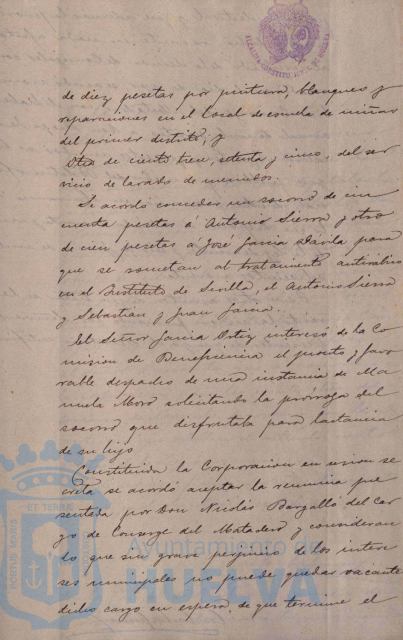 de diez pesetas por pintura, blanqueo y
reparaciones en el local de escuela de niñas
del primer distrito; y
Otra de ciento trece, setenta y cinco, del ser
vicio de lavado de menudos.
Se acordó conceder un socorro de cin
cuenta pesetas á Antonio Sierra y otro
de cien pesetas á José Garcia Dávila para
que se sometan al tratamiento antirrábico
en el Instituto de Sevilla, el Antonio Sierra
y Sebastian y Juan Garcia.
El Señor Garcia Ortiz interesó de la Co
mision de Beneficencia el pronto y favo
rable despacho de una instancia de Ma
nuela Mora solicitando la prorroga del
socorro que disfrutaba para lactancia
de su hijo
Constituida la Corporacion en sesion se
creta se acordó aceptar la renuncia pre
sentada por Don Nicolás Bargalló del car
go de Conserge del Matadero y consideran
do que sin grave perjuicio de los intere
ses municipales no puede quedar vacante
dicho cargo en espera de que termine el
PORTUS MARIS ET TERRAE
Ayuntamiento de
HUELVA